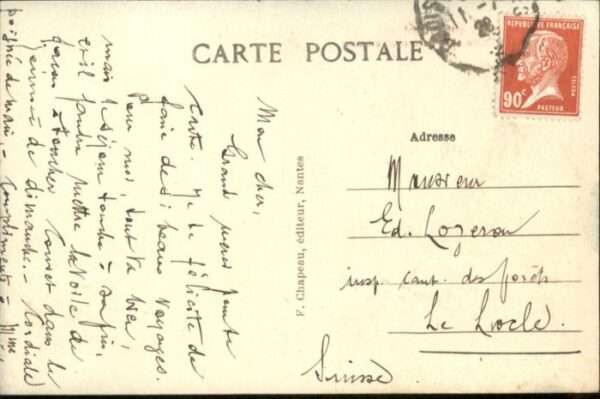 CARTE POSTALE
RÉPUBLIQUE FRANÇAISE
90c
PASTEUR
Adresse
F. Chapeau, éditeur, Nantes
Monsieur
Ed. Lozeron
insp. cant. des forêts
Le Locle.
Suisse
Mon cher,
Grand merci pour ta
carte. Je te félicite de
faire de si beaux voyages.
Pour moi, tout va bien,
mais le séjour touche à sa fin,
et il faudra mettre la voile de
dans le
de dimanche. Cordiale
poignée de main. Compliments à Mme